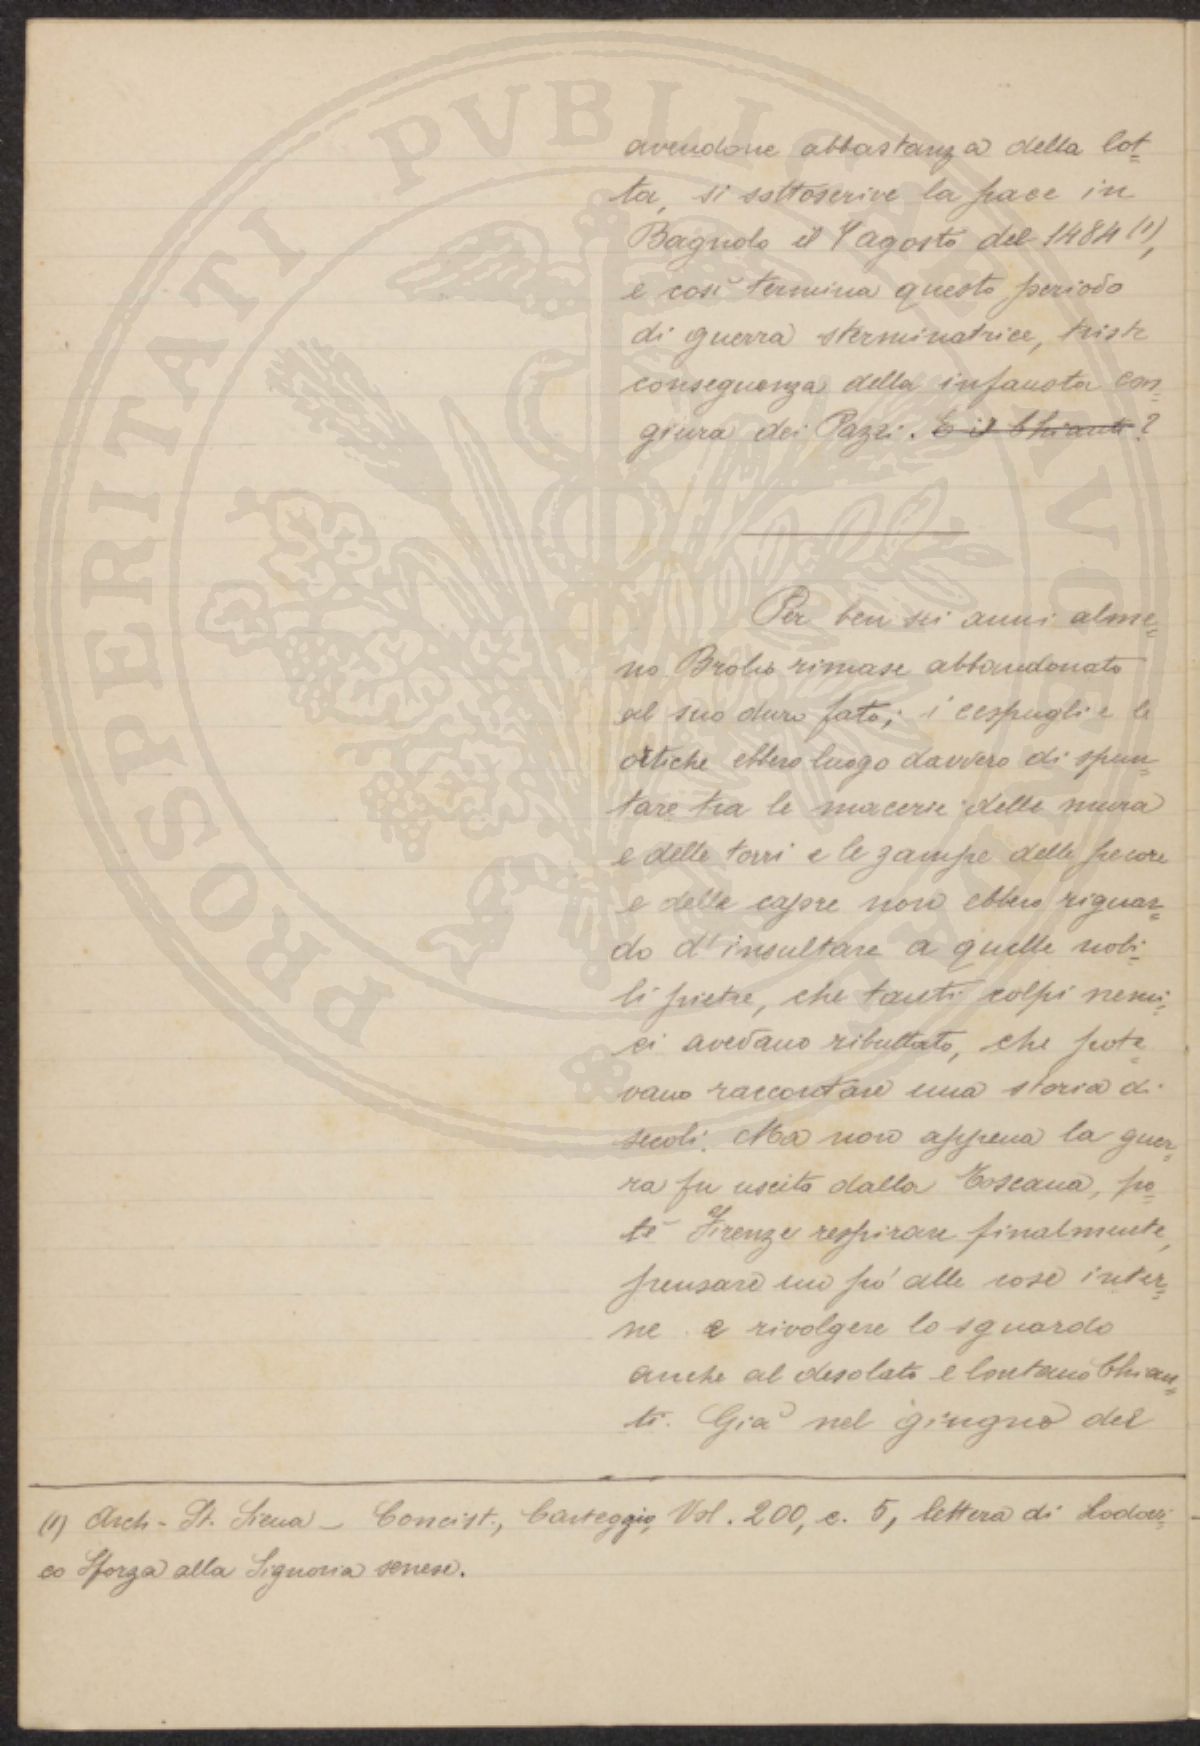 avendone abbastanza della lot=
ta, si sottoscrive la pace in
Bagnolo il 7 agosto del 1484 (1),
e così termina questo periodo
di guerra sterminatrice, triste
conseguenza della infausta con=
giura dei Pazzi. E il Chianti?
Per ben sei anni alme=
no Brolio rimase abbandonato
al suo duro fato; i cespugli e le
ortiche ebbero luogo davvero di spun=
tare tra le macerie delle mura
e delle torri e le zampe delle pecore
e delle capre non ebbero riguar=
do d'insultare a quelle nobi=
li pietre, che tanti colpi nemi=
ci avevano ributtato, che pote=
vano raccontare una storia di
secoli. Ma non appena la guer=
ra fu uscita dalla Toscana, po=
tè Firenze respirare finalmente,
pensare un pò alle cose inter=
ne e rivolgere lo sguardo
anche al desolato e lontano Chian=
ti. Già nel giugno del
(1) Arch. St. Siena - Concist., Carteggio, Vol. 200, c. 5, lettera di Lodovi=
co Sforza alla Signoria senese.
PROSPERITATI PVBLICAE AVGENDAE